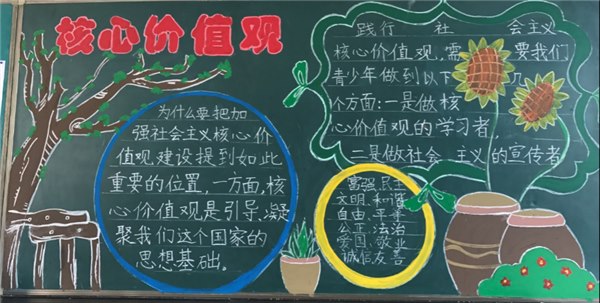 核心价值观
为什么要把加
强社会主义核心价
值观,建设提到如此
重要的位置,一方面,核
心价值观是引导、凝
聚我们这个国家的
思想基础。
践行 社 会主义
核心价值观,需 要我们
青少年做到以下 几
个方面:一是做核
心价值观的学习者,
二是做社会 主义的宣传者
富强,民主
文明,和谐
自由,平等
公正,法治
爱国,敬业
诚信友善